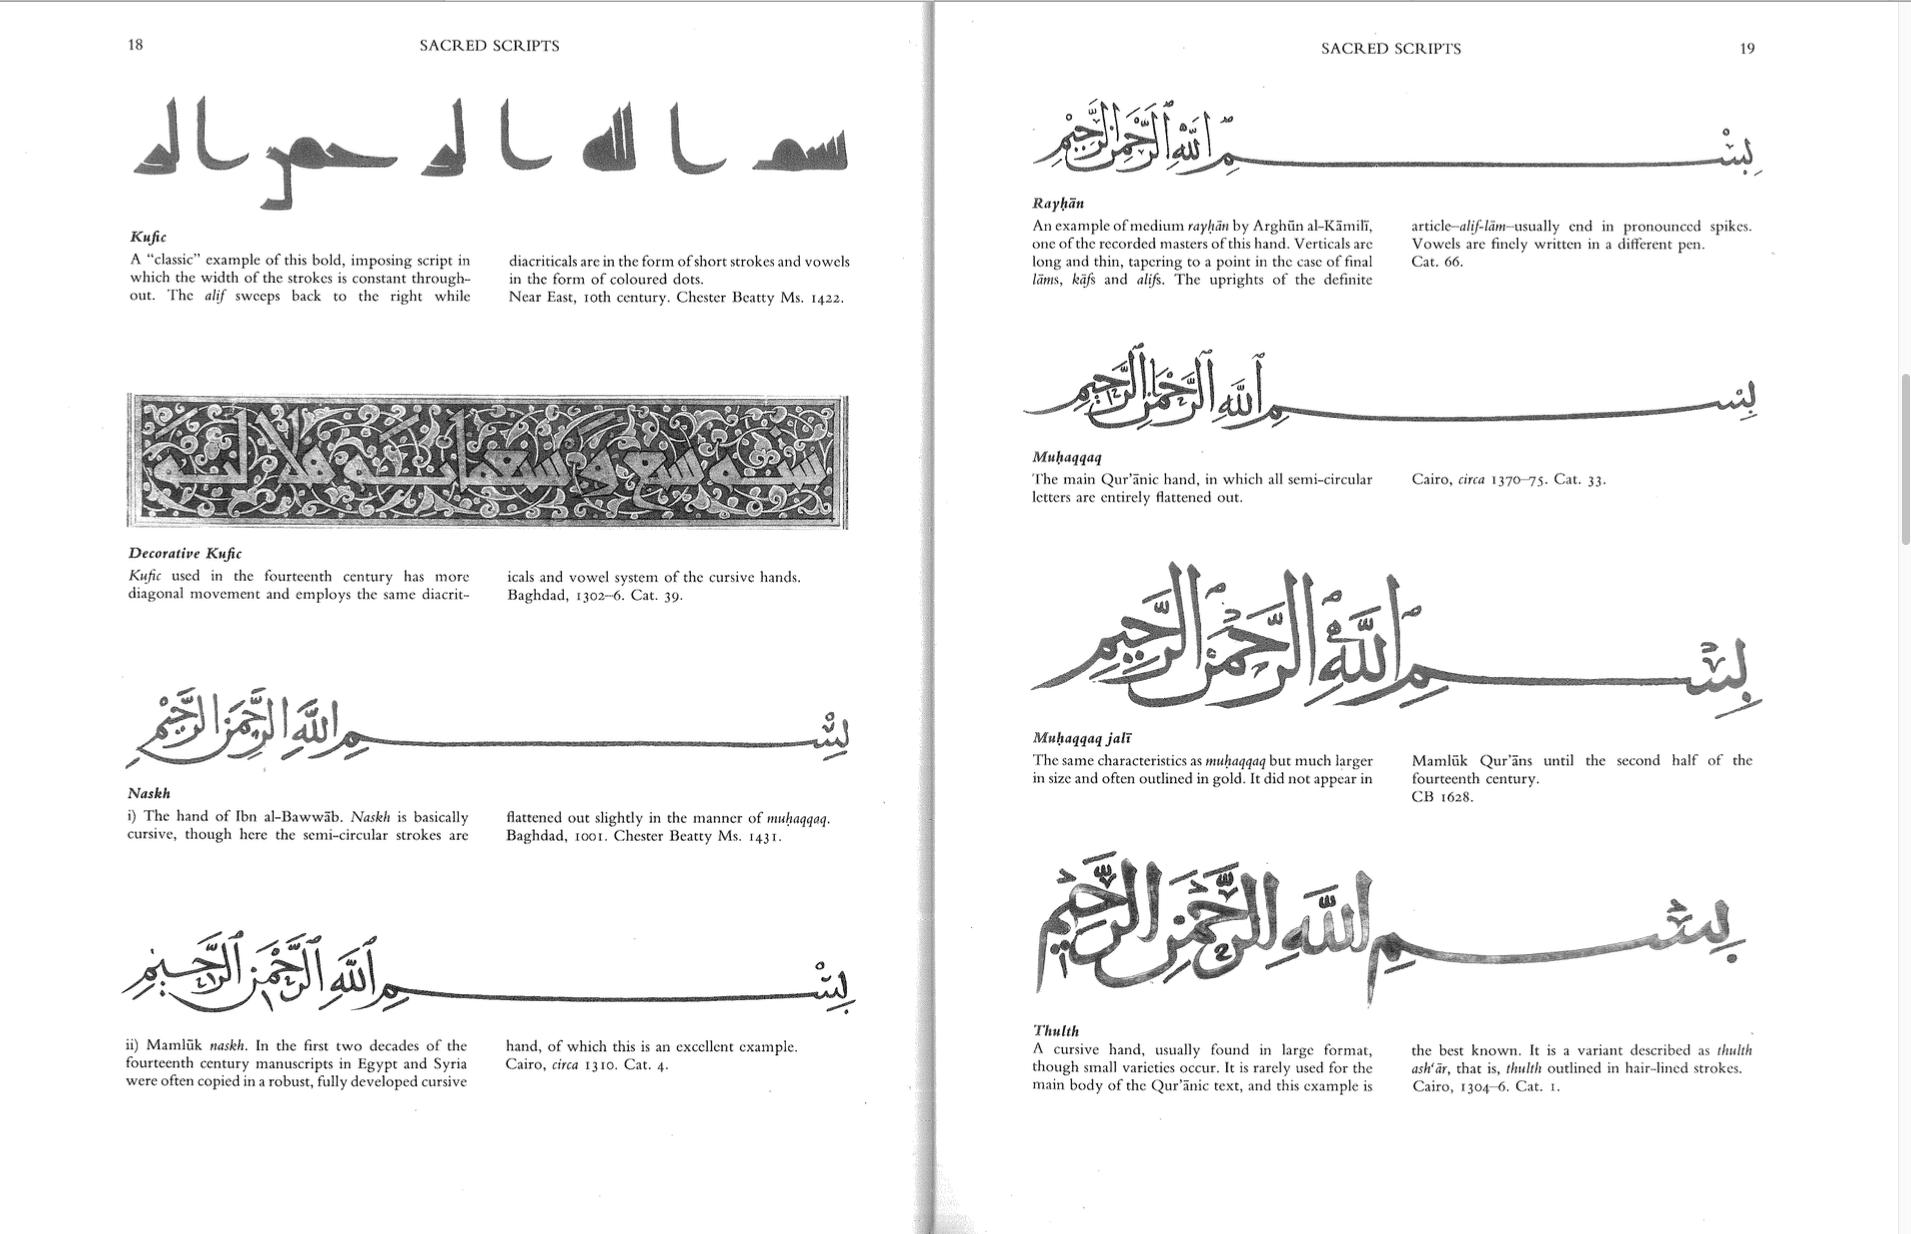 18
SACRED SCRIPTS
بسم الله الرحمن الر
Kufic
A “classic” example of this bold, imposing script in
which the width of the strokes is constant through-
out. The alif sweeps back to the right while
diacriticals are in the form of short strokes and vowels
in the form of coloured dots.
Near East, 10th century. Chester Beatty Ms. 1422.
سنه سبع وسبعمائه هلاليه
Decorative Kufic
Kufic used in the fourteenth century has more
diagonal movement and employs the same diacrit-
icals and vowel system of the cursive hands.
Baghdad, 1302–6. Cat. 39.
بِسْمِ اللَّهِ الرَّحْمَنِ الرَّحِيْمِ
Naskh
i) The hand of Ibn al-Bawwāb. Naskh is basically
cursive, though here the semi-circular strokes are
flattened out slightly in the manner of muḥaqqaq.
Baghdad, 1001. Chester Beatty Ms. 1431.
بِسْمِ اللَّهِ الرَّحْمَنِ الرَّحِيمِ
ii) Mamlūk naskh. In the first two decades of the
fourteenth century manuscripts in Egypt and Syria
were often copied in a robust, fully developed cursive
hand, of which this is an excellent example.
Cairo, circa 1310. Cat. 4.
SACRED SCRIPTS
19
بِسْمِ اللَّهِ الرَّحْمَنِ الرَّحِيْمِ
Rayḥān
An example of medium rayḥān by Arghūn al-Kāmilī,
one of the recorded masters of this hand. Verticals are
long and thin, tapering to a point in the case of final
lāms, kāfs and alifs. The uprights of the definite
article–alif-lām–usually end in pronounced spikes.
Vowels are finely written in a different pen.
Cat. 66.
بِسْمِ اللَّهِ الرَّحْمَنِ الرَّحِيمِ
Muḥaqqaq
The main Qur’ānic hand, in which all semi-circular
letters are entirely flattened out.
Cairo, circa 1370–75. Cat. 33.
بِسْمِ اللَّهِ الرَّحْمَنِ الرَّحِيمِ
Muḥaqqaq jalī
The same characteristics as muḥaqqaq but much larger
in size and often outlined in gold. It did not appear in
Mamlūk Qur’āns until the second half of the
fourteenth century.
CB 1628.
بِسْمِ اللَّهِ الرَّحْمَنِ الرَّحِيمِ
Thulth
A cursive hand, usually found in large format,
though small varieties occur. It is rarely used for the
main body of the Qur’ānic text, and this example is
the best known. It is a variant described as thulth
ash‘ār, that is, thulth outlined in hair-lined strokes.
Cairo, 1304–6. Cat. 1.